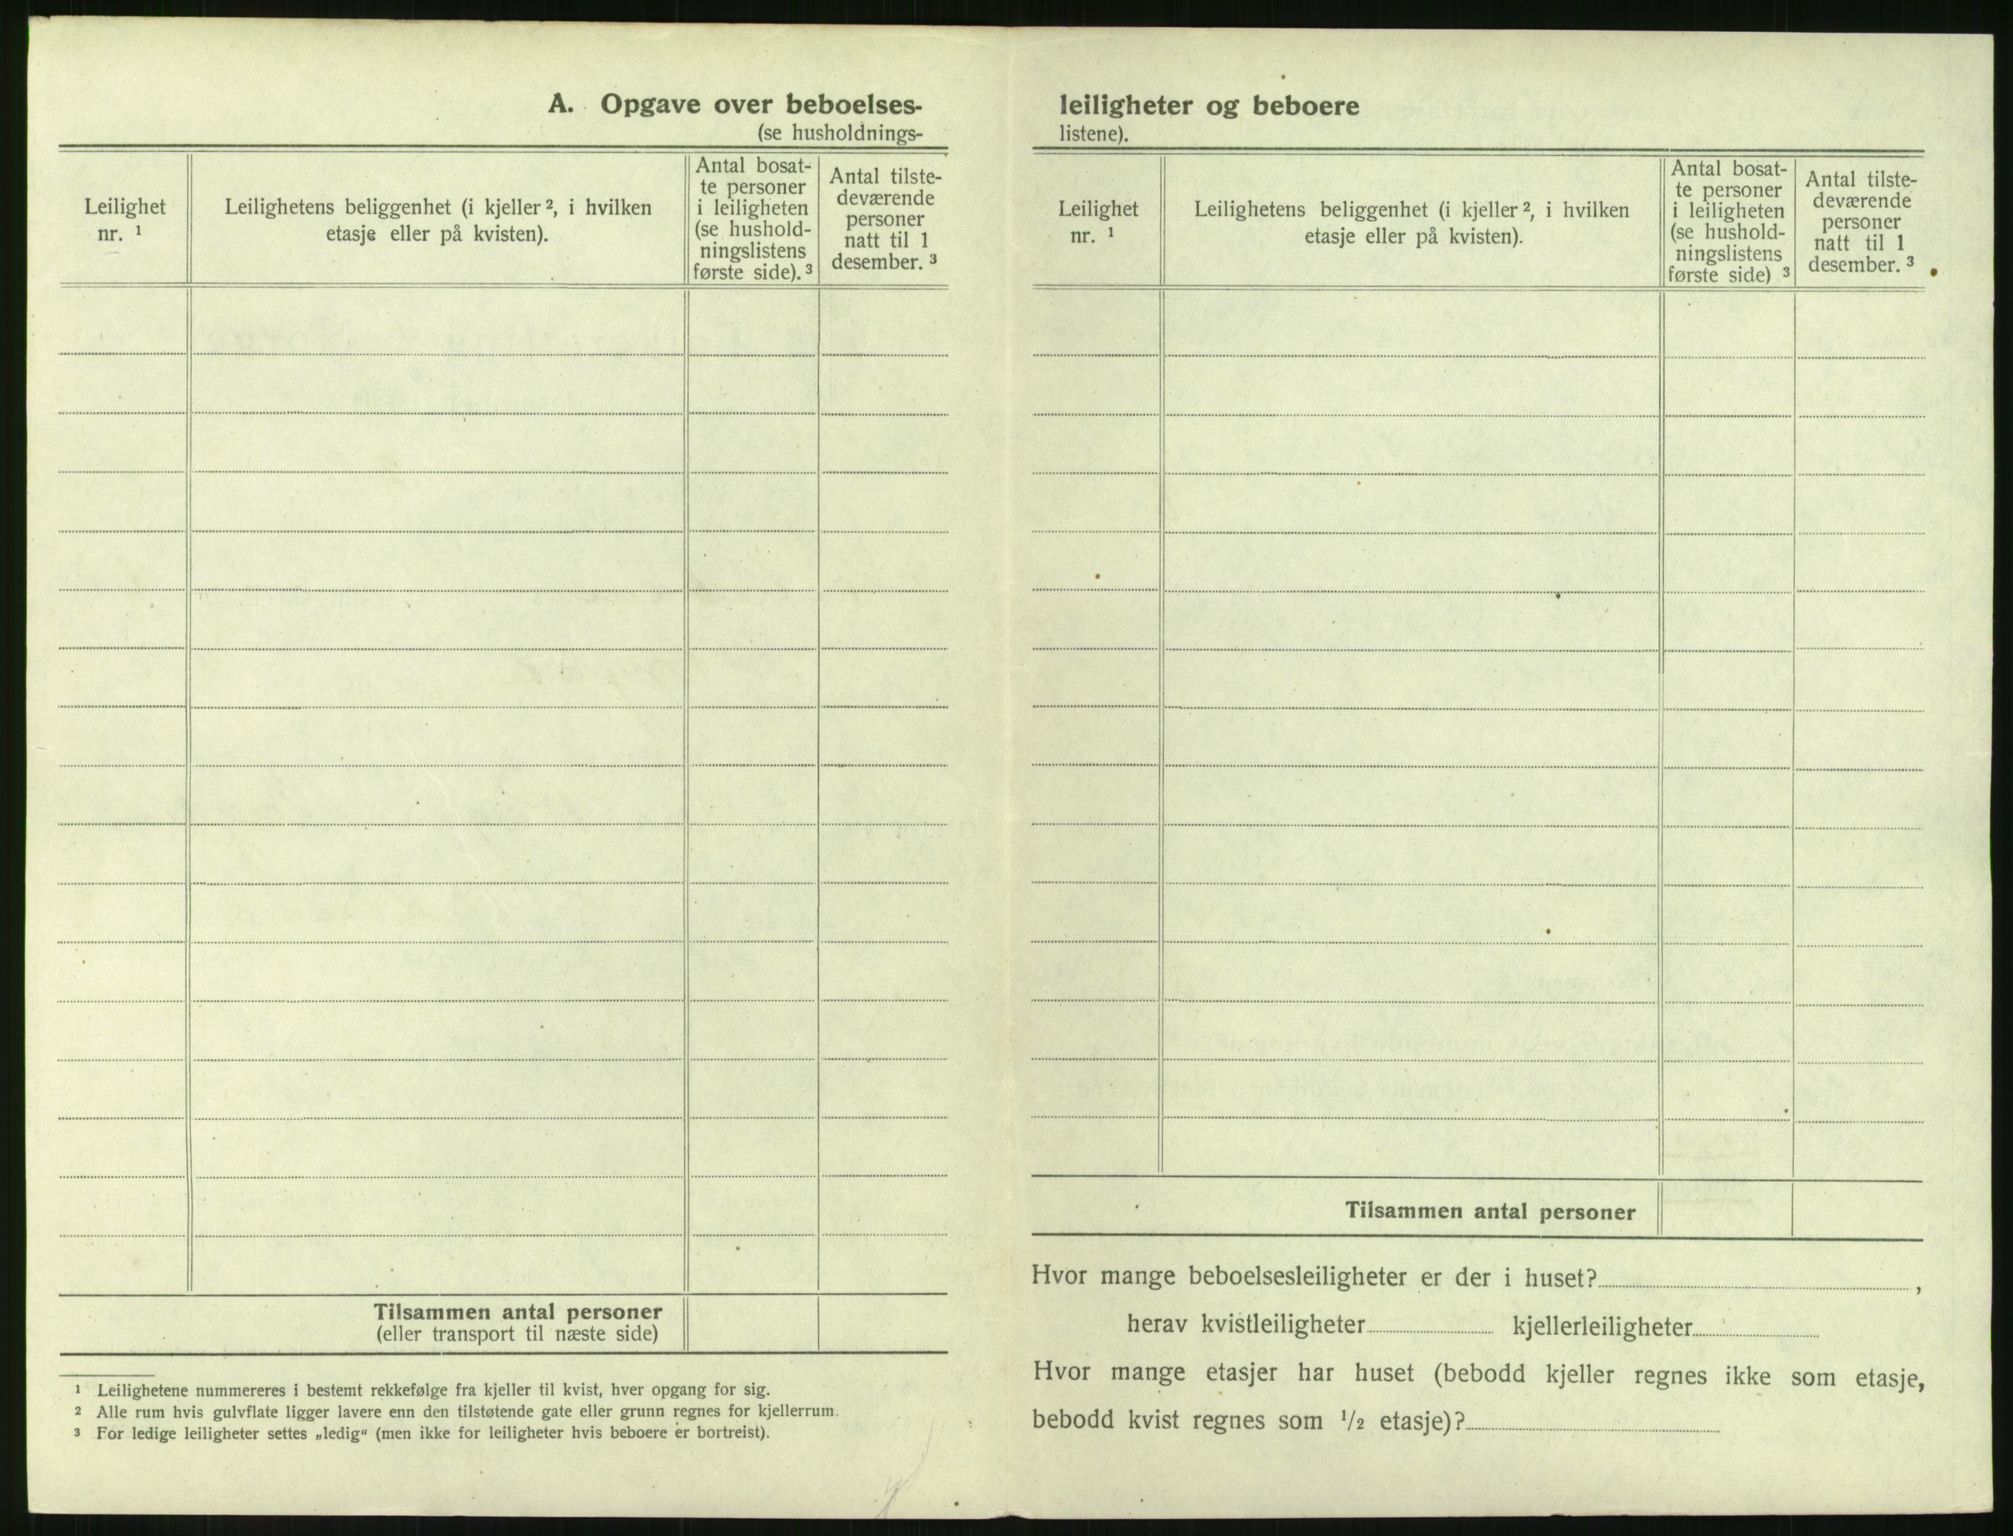 A. Opgave over beboelses-
(se husholdnings-
Leilighet
nr. ¹
Leilighetens beliggenhet (i kjeller ², i hvilken
etasje eller på kvisten).
Antal bosat-
te personer
i leiligheten
(se hushold-
ningslistens
første side). ³
Antal tilste-
deværende
personer
natt til 1
desember. ³
Tilsammen antal personer
(eller transport til næste side)
¹ Leilighetene nummereres i bestemt rekkefølge fra kjeller til kvist, hver opgang for sig.
² Alle rum hvis gulvflate ligger lavere enn den tilstøtende gate eller grunn regnes for kjellerrum.
³ For ledige leiligheter settes „ledig“ (men ikke for leiligheter hvis beboere er bortreist).
leiligheter og beboere
listene).
Leilighet
nr. ¹
Leilighetens beliggenhet (i kjeller ², i hvilken
etasje eller på kvisten).
Antal bosat-
te personer
i leiligheten
(se hushold-
ningslistens
første side) ³
Antal tilste-
deværende
personer
natt til 1
desember. ³
Tilsammen antal personer
Hvor mange beboelsesleiligheter er der i huset? ,
herav kvistleiligheter kjellerleiligheter
Hvor mange etasjer har huset (bebodd kjeller regnes ikke som etasje,
bebodd kvist regnes som ½ etasje)?